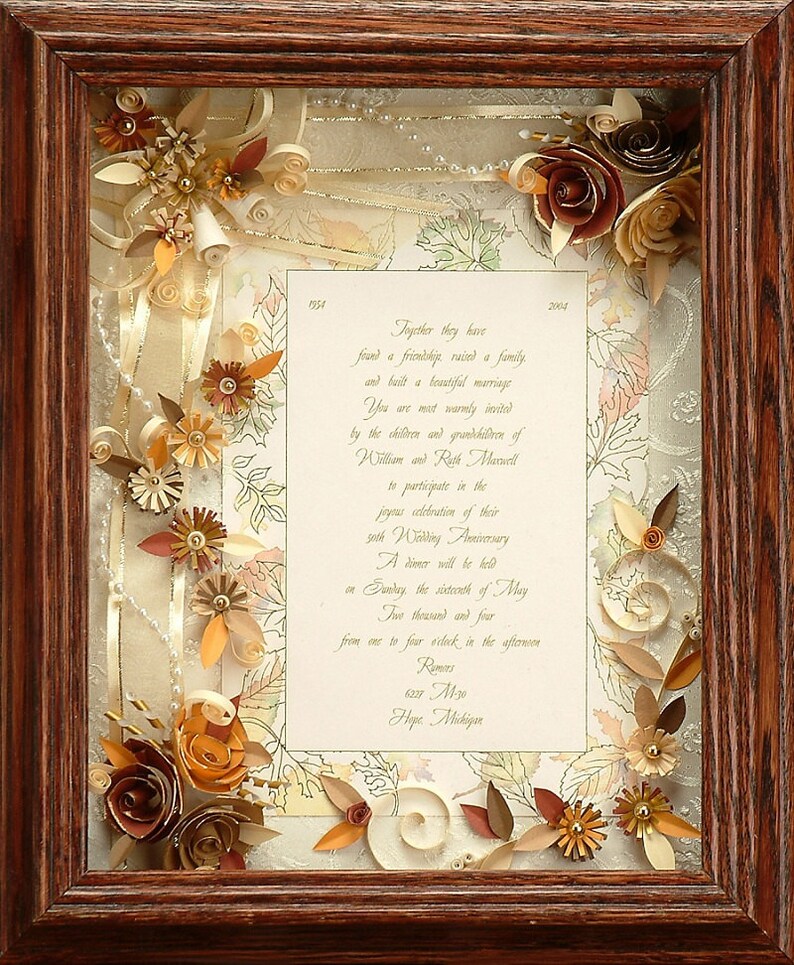 1954 2004
Together they have
found a friendship, raised a family,
and built a beautiful marriage
You are most warmly invited
by the children and grandchildren of
William and Ruth Maxwell
to participate in the
joyous celebration of their
50th Wedding Anniversary
A dinner will be held
on Sunday, the sixteenth of May
Two thousand and four
from one to four o'clock in the afternoon
Rumors
6227 M-30
Hope, Michigan